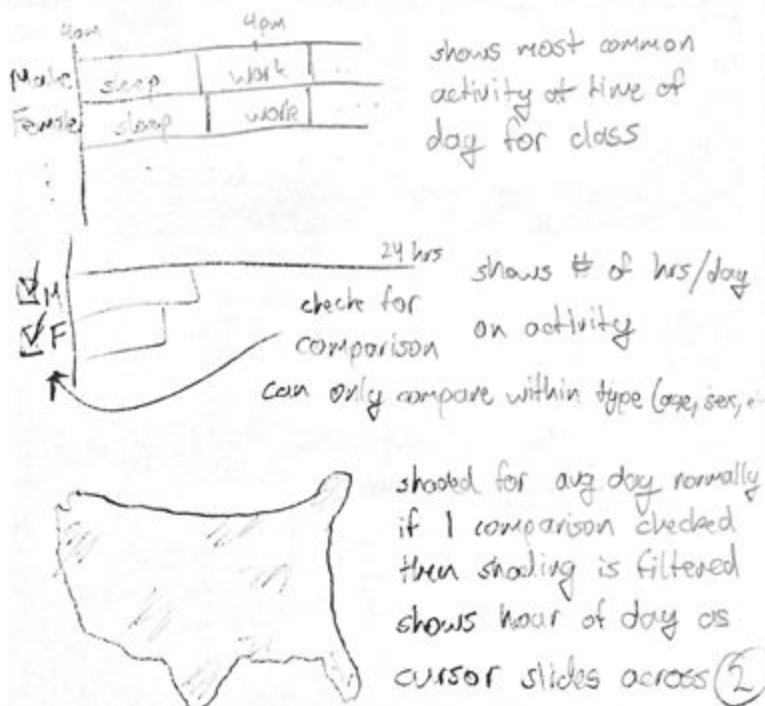 4am 4pm
Male sleep work ...
Female sleep work ...
shows most common
activity at time of
day for class
24 hrs
M
F
check for
comparison
shows # of hrs/day
on activity
can only compare within type (age, sex,
shaded for avg day normally
if 1 comparison checked
then shading is filtered
shows hour of day as
cursor slides across 2